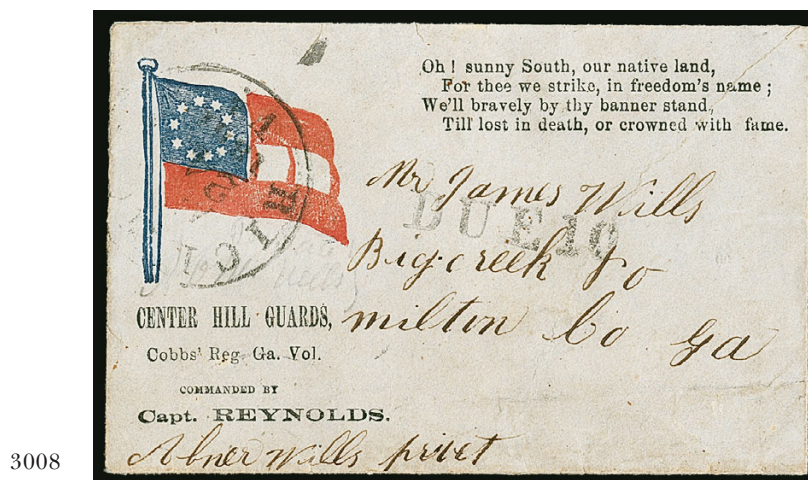 Oh ! sunny South, our native land,
For thee we strike, in freedom's name ;
We'll bravely by thy banner stand,
Till lost in death, or crowned with fame.
Mr James Wills
DUE 10
Big creek Po
milton Co Ga
CENTER HILL GUARDS,
Cobbs' Reg. Ga. Vol.
COMMANDED BY
Capt. REYNOLDS.
Abner Wills privet
3008